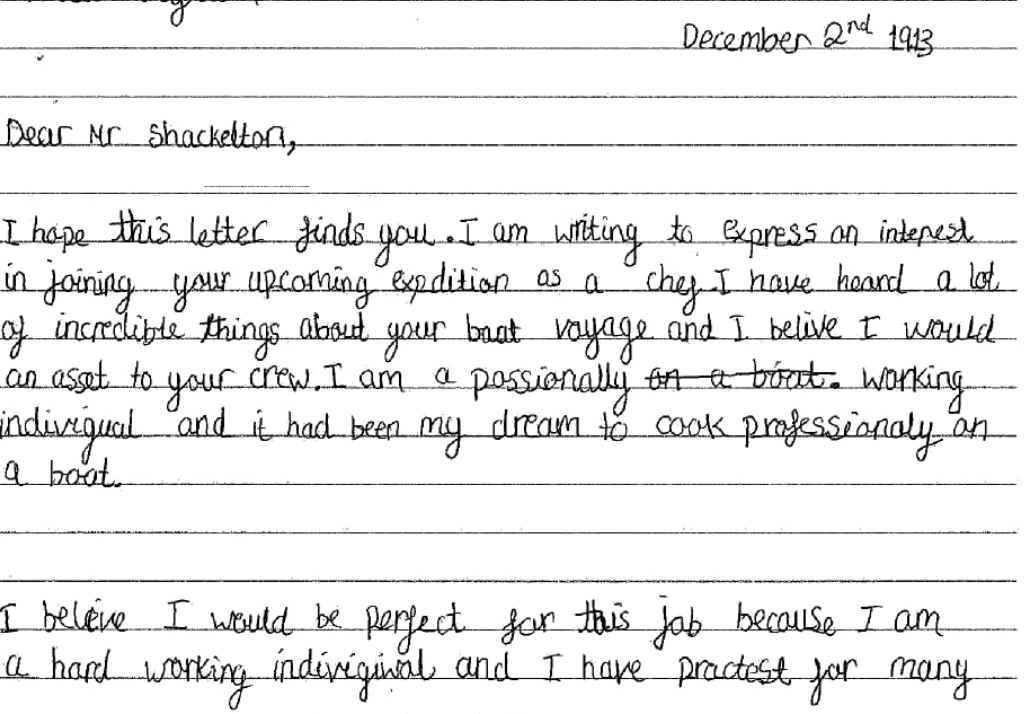 December 2nd 1913
Dear Mr Shackelton,
I hope this letter finds you. I am writing to express an interest
in joining your upcoming expdition as a chef. I have heard a lot
of incredible things about your boat voyage and I belive I would
an asset to your crew. I am a possionally on a boat. working
indivigual and it had been my dream to cook professionaly on
a boat.
I beleive I would be perfect for this job because I am
a hard working indivigiual and I have practest for many